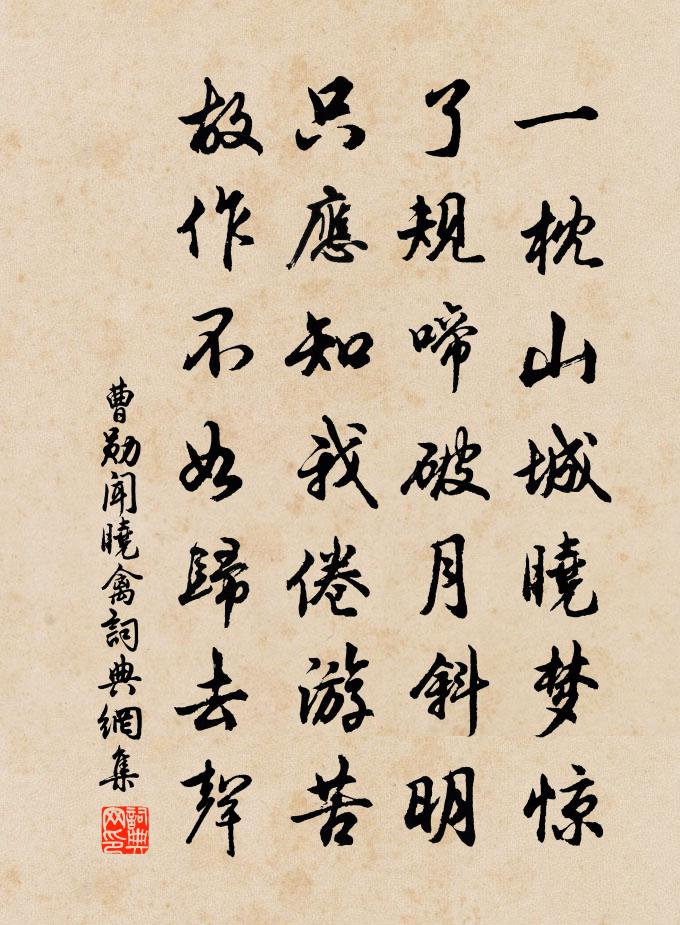 一枕山城曉梦惊
了規啼破月斜明
只應知我倦游苦
故作不如歸去聲
曹勋闻曉禽詞典網集
詞典网印